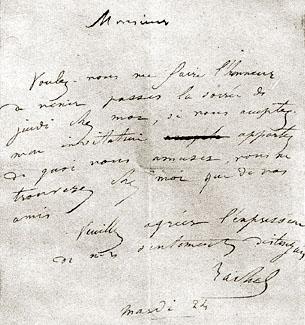 Monsieur
Voulez-nous me faire l'honneur
de venir passer la soirée de
jeudi chez moi, si vous acceptez
mon invitation apportez
de quoi nous amuser, vous ne
trouverez chez moi que de vos
amis
Veuillez agréer l'expression
de mes sentiments distingués
Rachel
mardi 24